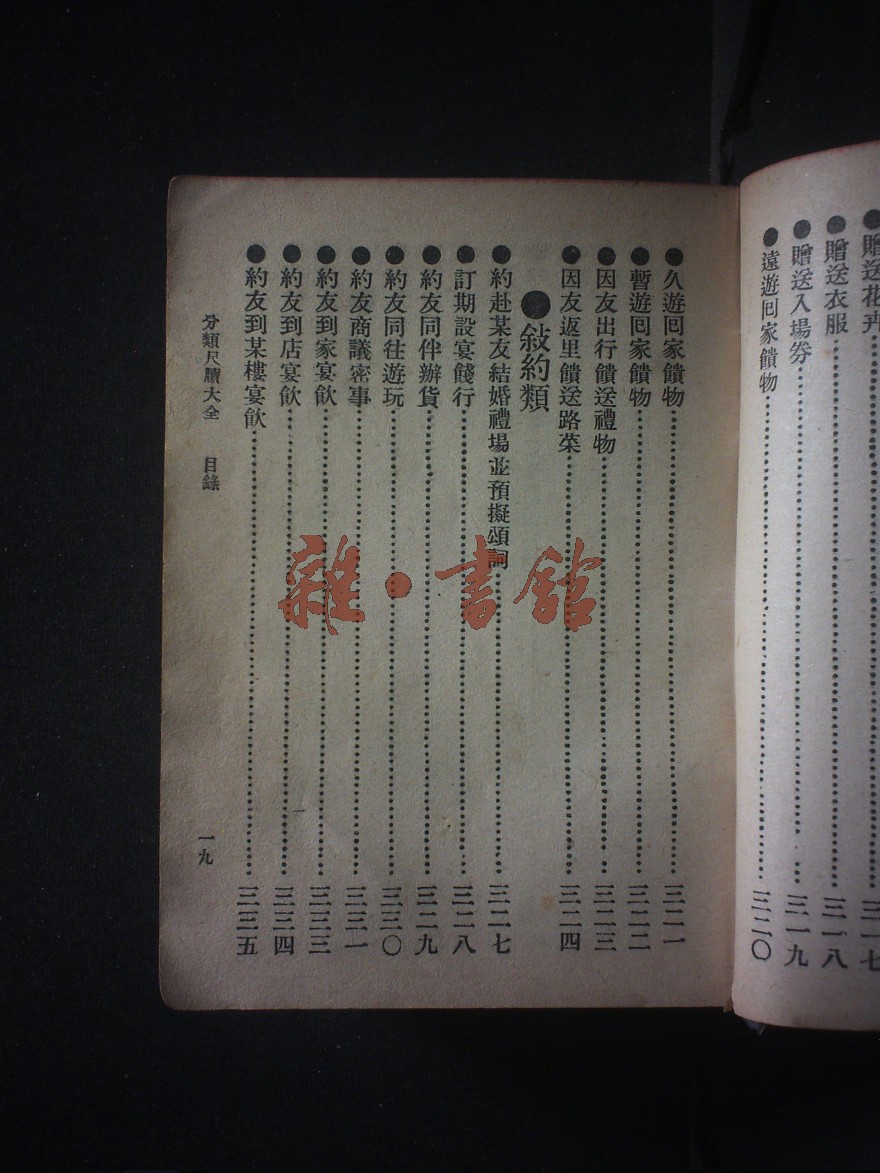 ●贈送花卉……三一七
●贈送衣服……三一八
●贈送入場券……三一九
●遠遊囘家饋物……三二〇
●久遊囘家饋物……三二一
●暫遊囘家饋物……三二二
●因友出行饋送禮物……三二三
●因友返里饋送路菜……三二四
●敍約類
●約赴某友結婚禮場並預擬頌詞……三二七
●訂期設宴餞行……三二八
●約友同伴辦貨……三二九
●約友同往遊玩……三三〇
●約友商議密事……三三一
●約友到家宴飲……三三三
●約友到店宴飲……三三四
●約友到某樓宴飲……三三五
分類尺牘大全 目錄 一九
雜·書館